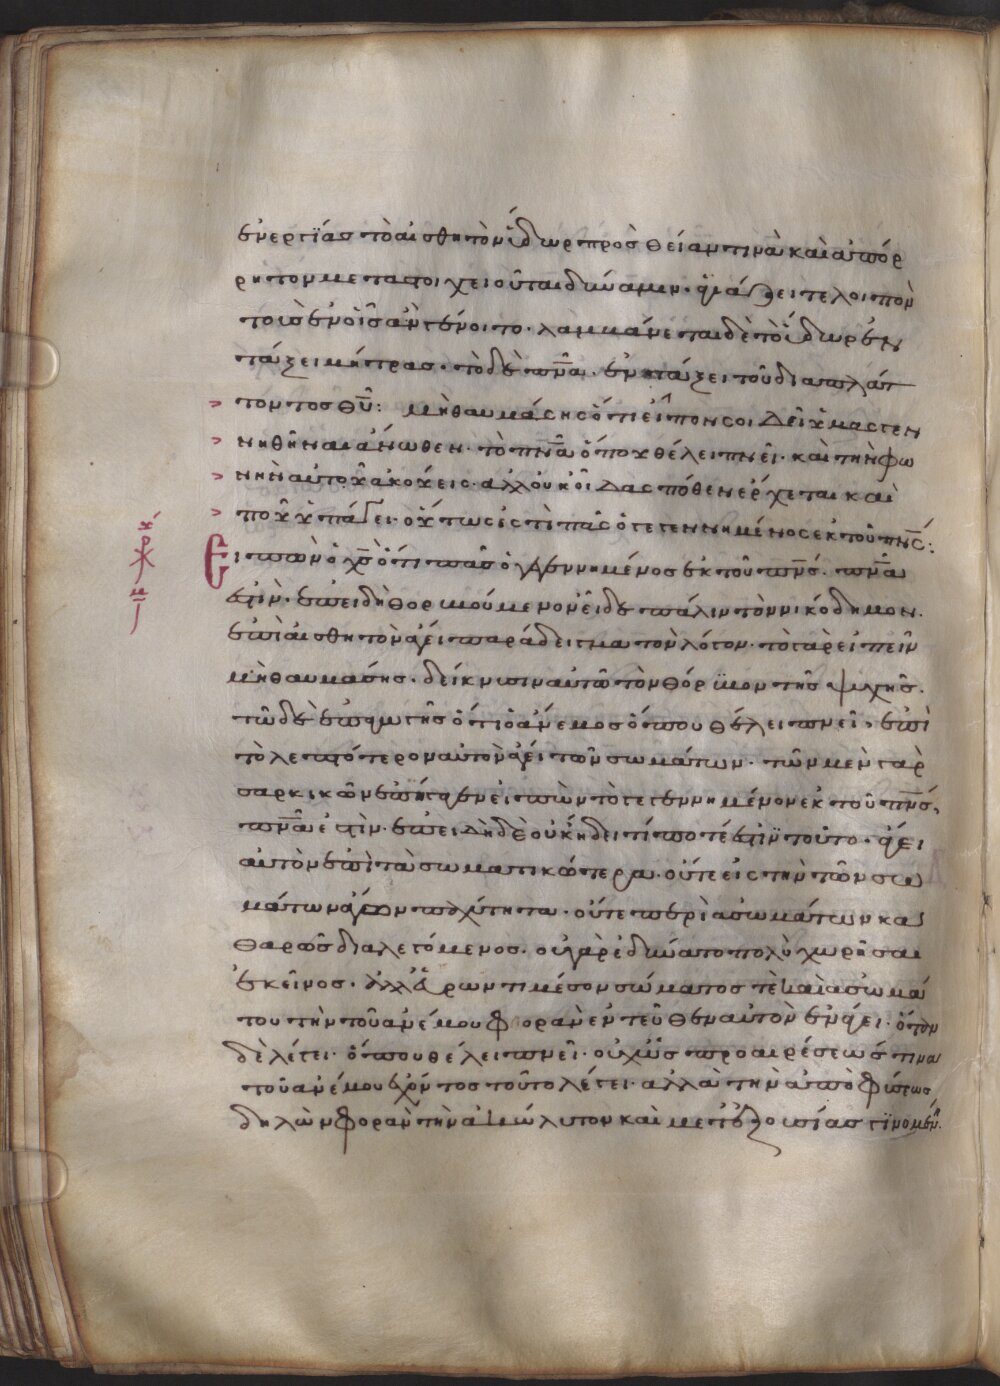 ἐνεργείας τὸ αἰσθητὸν ὕδωρ πρὸς θείαν τινὰ καὶ ἀπόρ
ρητον μεταστοιχειοῦται δύναμιν· ἁγιάζει τε λοιπὸν
τοὺς ἐν οἷς ἂν γένοιτο· λαμβάνεται δὲ τὸ ὕδωρ ἐν
τάξει μήτρας· τὸ δὲ πνᾶ· ἐν τάξει τοῦ διαπλάτ
τοντος θῦ: Μὴ θαυμάσης ὅτι εἶπον σοι Δεῖ ὑμᾶς γεν
νηθῆναι ἄνωθεν· τὸ πνᾶ ὅπου θέλει πνεῖ· καὶ τὴν φω
νὴν αὐτοῦ ἀκούεις· ἀλλ οὐκ οἶδας πόθεν ἔρχεται καὶ
ποῦ ὑπάγει· οὕτως ἐς τὶ πᾶς ὁ γεγεννημένος ἐκ τοῦ πνς:
Εἰπὼν ὁ χς ὅτι πᾶς ὁ γεγεννημένος ἐκ τοῦ πνς· πνᾶ
ἐστὶν· ἐπειδὴ θορυβούμενον εἶδε πάλιν τὸν νικόδημον·
ἐπὶ αἰσθητὸν ἄγει παράδειγμα τὸν λόγον· τὸ γὰρ εἰπεῖν
μὴ θαυμάσης· δείκνυσιν αὐτῶ τὸν θόρυβον τῆς ψυχῆς·
τῶ δὲ ἐπαγωγῆς ὅτι ὁ ἄνεμος ὅπου θέλει πνεῖ· ἐπὶ
τὸ λεπτότερον αὐτὸν ἄγει τῶν σωμάτων· τῶν μὲν γὰρ
σαρκικῶν ἀπήγαγεν εἰπὼν τὸ γεγεννημένον ἐκ τοῦ πνς,
πνᾶ ἐστὶν· ἐπειδὴ δὲ οὐκ ἤδει τί ποτέ ἐστὶν τοῦτο· ἄγει
αὐτὸν ἐπὶ τὰ σωματικώτερα· οὔτε εἰς τὴν τῶν σω
μάτων ἄγων παχύτητα· οὔτε περὶ ἀσωμάτων κα
θαρῶς διαλεγόμενος· οὐ γὰρ ἐδύνατο πολὺ χωρῆσαι
ἐκεῖνος· ἀλλ εὑρών τι μέσον σώματος τὲ καὶ ἀσωμά
του τὴν τοῦ ἀνέμου φορὰν ἐντεῦθεν αὐτὸν ἐνάγει· ὅταν
δὲ λέγει· ὅπου θέλει πνεῖ· οὐχ ὡς προαιρέσεώς τινα
τοῦ ἀνέμου ἔχοντος τοῦτο λέγει· ἀλλὰ τὴν ἀπὸ φύσεως
δηλῶν φορὰν τὴν ἀκώλυτον καὶ μετ ἐξουσίας γινομένην